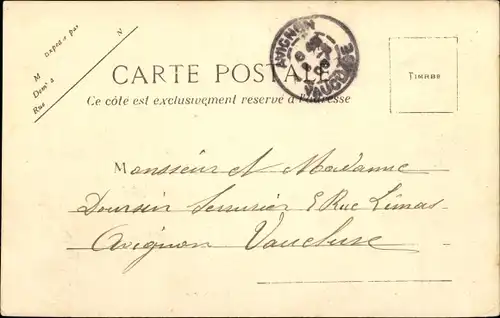 M exposé par N
M
Dem't à
Rue
AVIGNON
VAUCLUSE
CARTE POSTALE
Ce côté est exclusivement reservé à l'adresse
TIMBRE
Monsieur et Madame
Doursin Serrurier 8 Rue Limas
Avignon Vaucluse